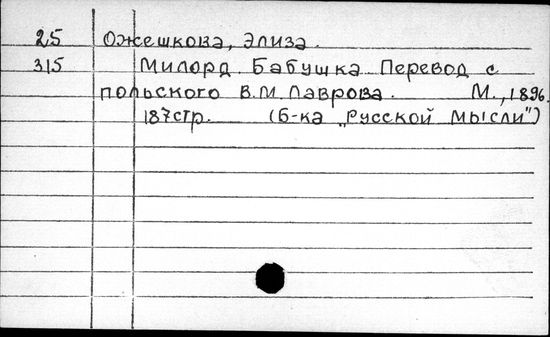 25 Ожешкова, Элиза.
315 Милорд. Бабушка. Перевод с
польского В.М. Лаврова. М., 1896.
187стр. (Б-ка „Русской Мысли")